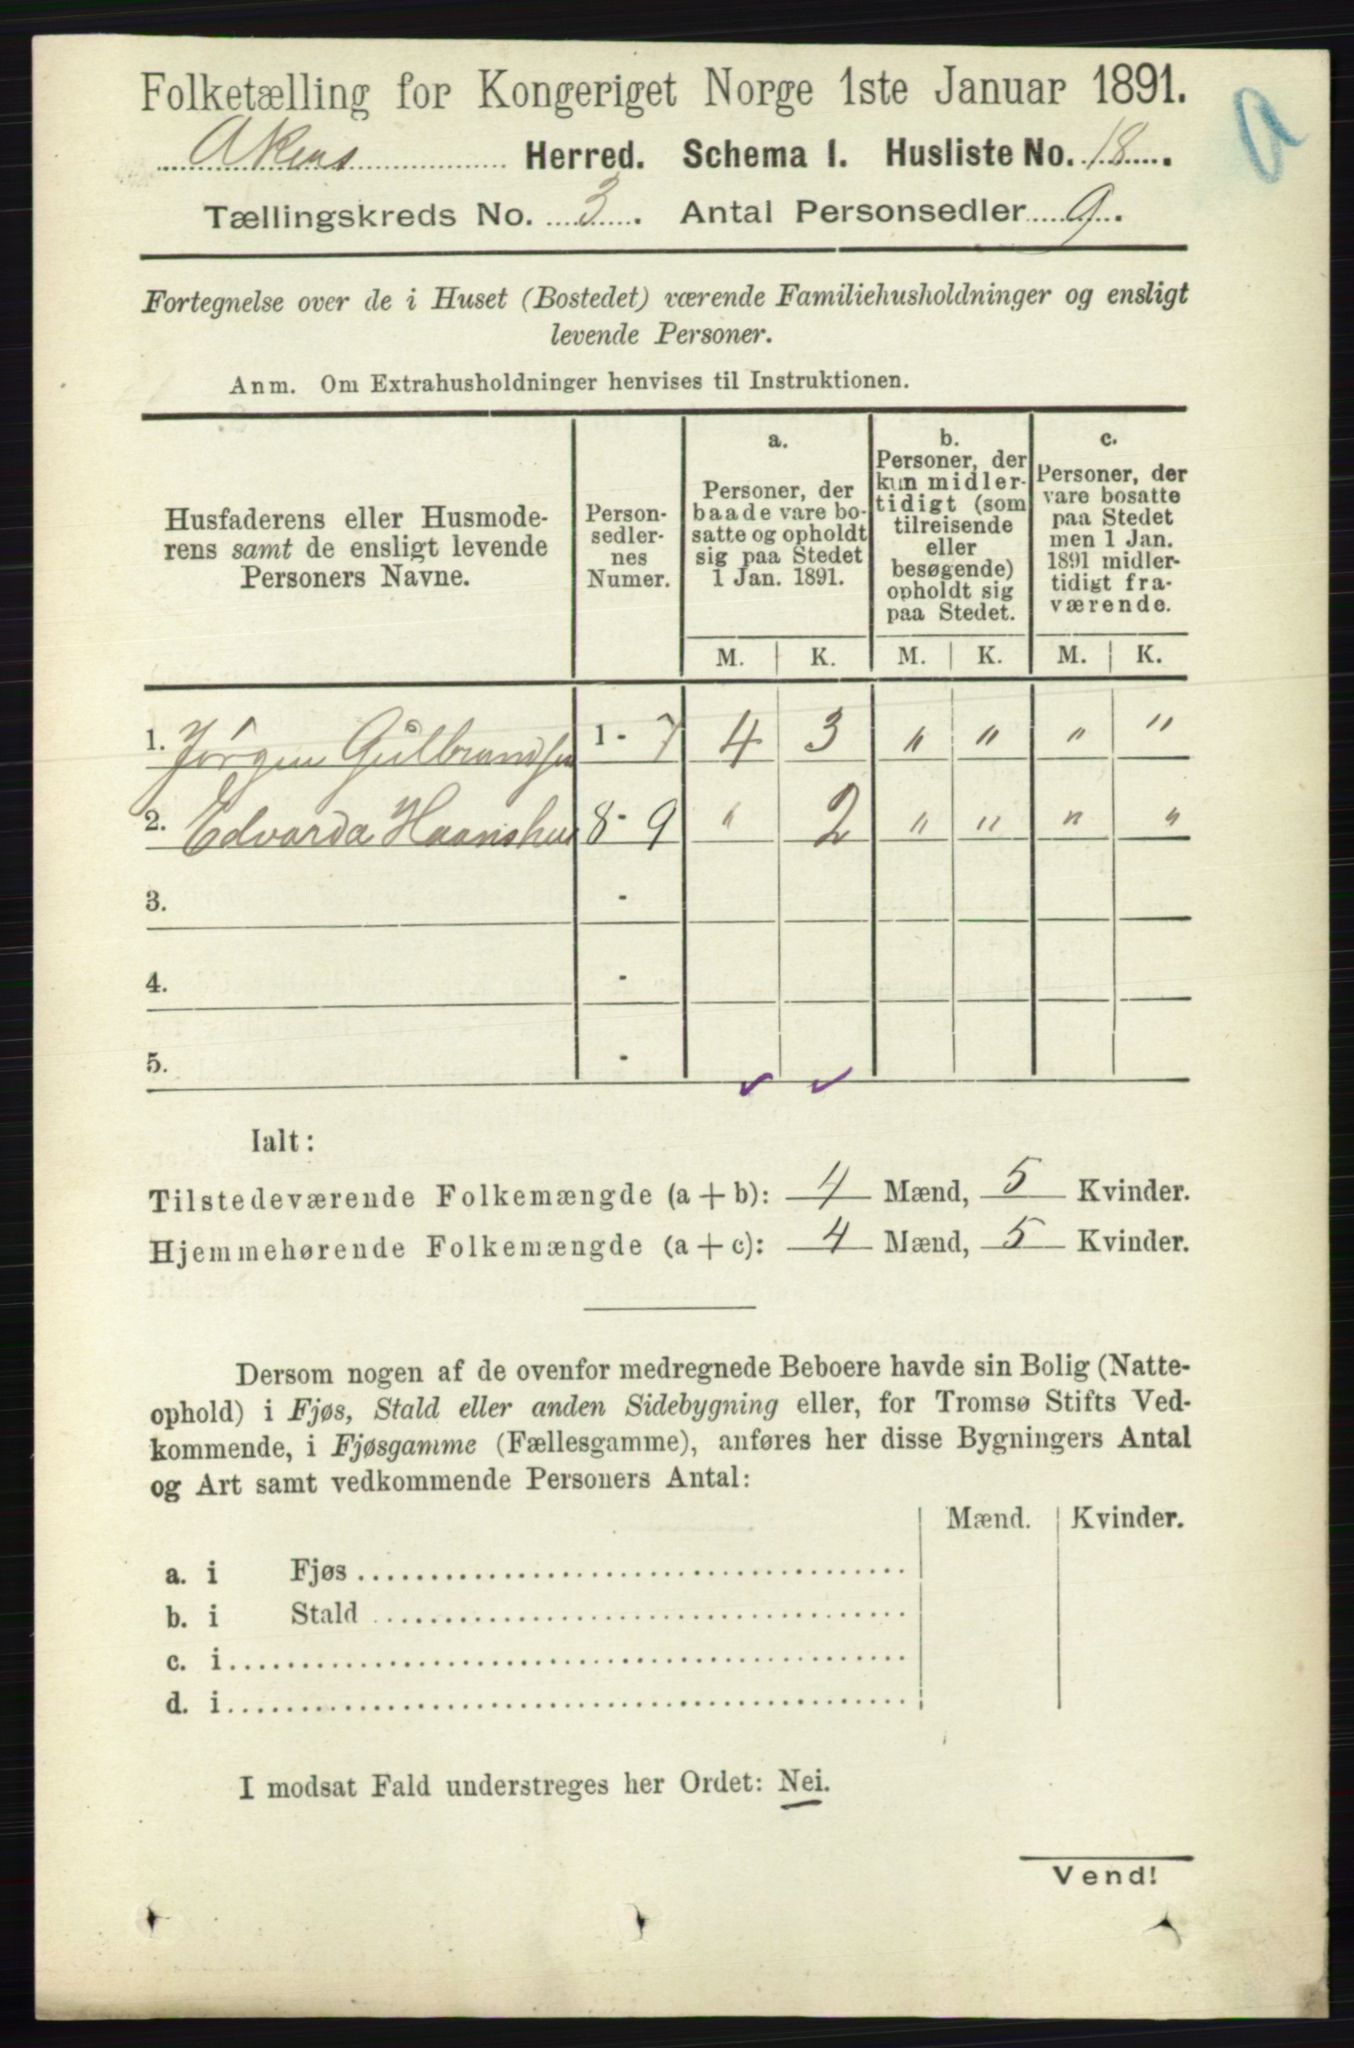 Folketælling for Kongeriget Norge 1ste Januar 1891.
Akers Herred. Schema I. Husliste No. 18.
Tællingskreds No. 3. Antal Personsedler 9.
Fortegnelse over de i Huset (Bostedet) værende Familiehusholdninger og ensligt
levende Personer.
Anm. Om Extrahusholdninger henvises til Instruktionen.
Husfaderens eller Husmode-
rens samt de ensligt levende
Personers Navne.
Person-
sedler-
nes
Numer.
a.
Personer, der
baade vare bo-
satte og opholdt
sig paa Stedet
1 Jan. 1891.
b.
Personer, der
kun midler-
tidigt (som
tilreisende
eller
besøgende)
opholdt sig
paa Stedet.
c.
Personer, der
vare bosatte
paa Stedet
men 1 Jan.
1891 midler-
tidigt fra-
værende.
M. K. M. K. M. K.
1. Jørgen Gulbrandsen 1 - 7 4 3 " " " "
2. Edvarda 8 - 9 " 2 " " " "
3. -
4. -
5. -
Ialt:
Tilstedeværende Folkemængde (a + b): 4 Mænd, 5 Kvinder.
Hjemmehørende Folkemængde (a + c): 4 Mænd, 5 Kvinder.
Dersom nogen af de ovenfor medregnede Beboere havde sin Bolig (Natte-
ophold) i Fjøs, Stald eller anden Sidebygning eller, for Tromsø Stifts Ved-
kommende, i Fjøsgamme (Fællesgamme), anføres her disse Bygningers Antal
og Art samt vedkommende Personers Antal:
Mænd. Kvinder.
a. i Fjøs
b. i Stald
c. i
d. i
I modsat Fald understreges her Ordet: Nei.
Vend!